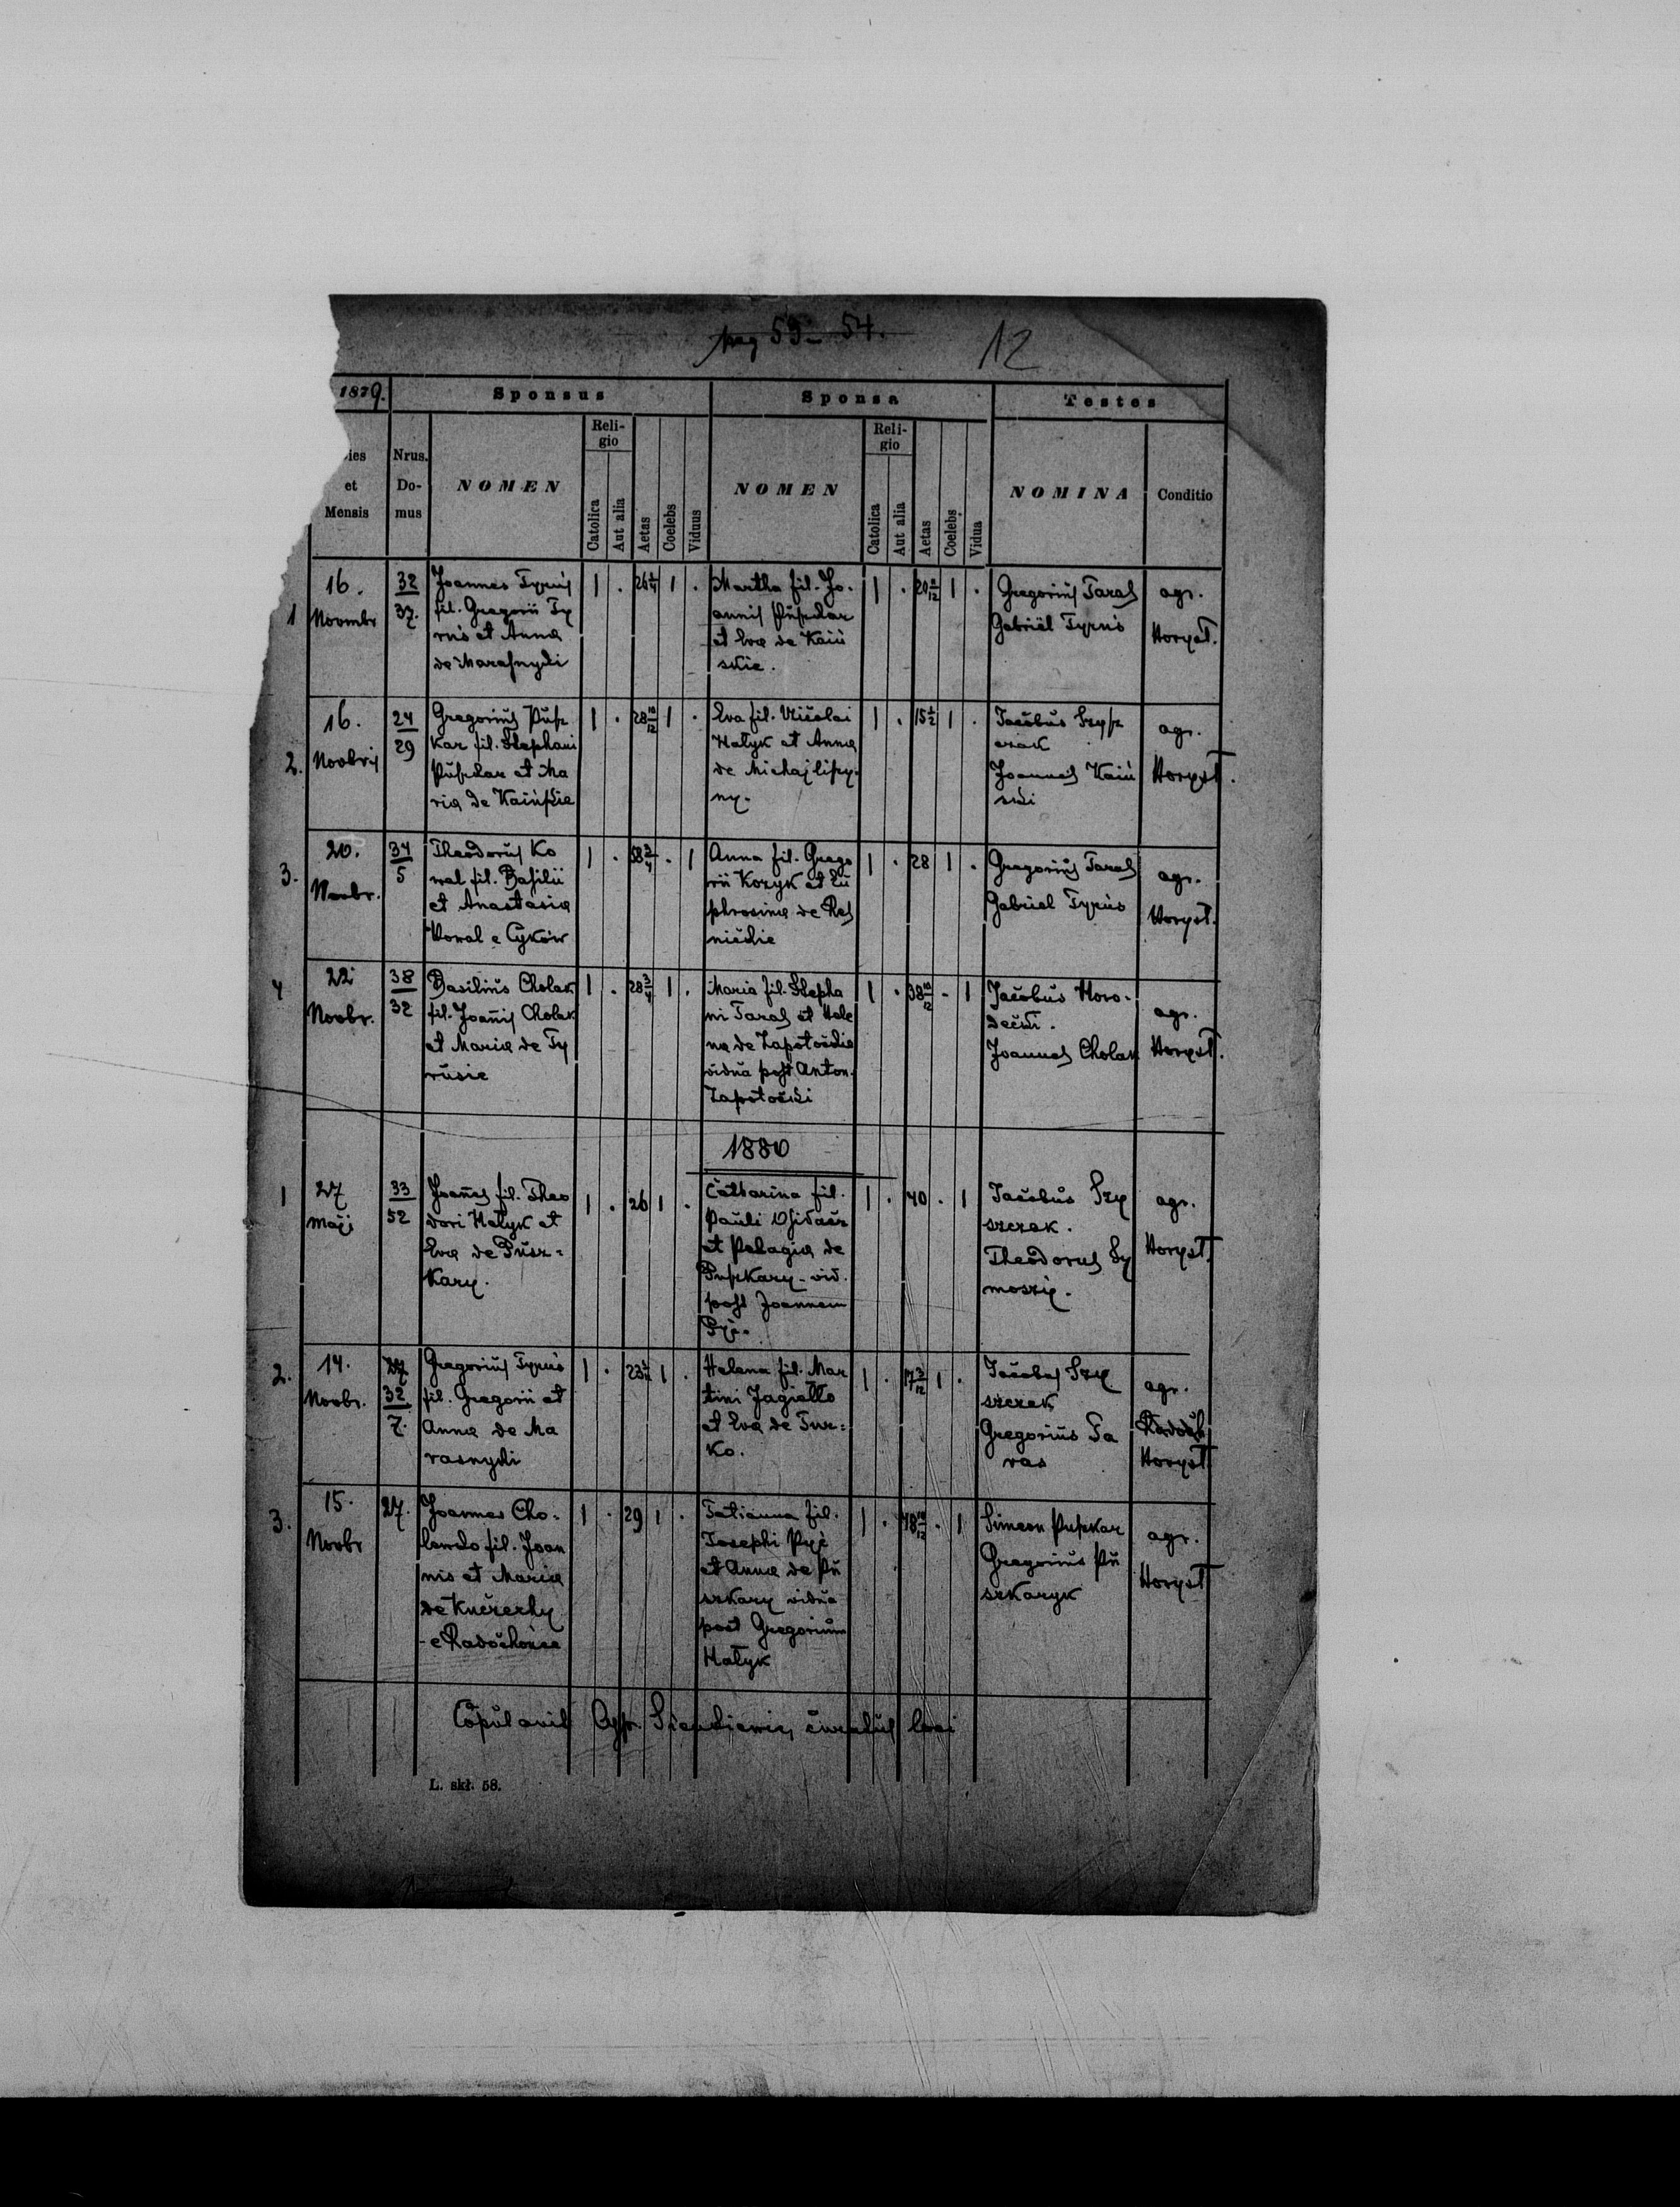 pag 53 - 54.
12
1879.
Sponsus
Sponsa
Testes
Dies et Mensis
Nrus. Do- mus
NOMEN
Reli- gio
Catolica
Aut alia
Aetas
Coelebs
Viduus
NOMEN
Reli- gio
Catolica
Aut alia
Aetas
Coelebs
Vidua
NOMINA
Conditio
1
16.
Novmbr
32
37.
Joannes Tyrus
fil. Gregorii Ty
rus et Anna
de Marasnyki
1 . 26 1/4 1 .
Martha fil. Jo.
annis Puszkar
et Eva de Kaiń
skie.
1 . 1 .
Gregorius Taras
Gabriel Tyrus
agr.
Horyst.
2.
16.
Novbris
24
29
Gregorius Pusz
kar fil. Stephani
Puszkar et Ma
ria de Kaińskie
1 . 28 10/12 1 .
Eva fil. Nicolai
Hałyk et Anna
de Michajliszy
ny.
1 . 15 1/2 1 .
Jacobus Szysz
czak
Joannes Kaiń
ski
agr.
Horyst.
3.
20.
Novbr.
34
5
Theodorus Ko
wal fil. Basilii
et Anastasia
Kowal e Cyków
1 . 58 3/4 . 1
Anna fil. Grego
rii Kozyk et Eu
phrosina de Res
nickie
1 . 28 1 .
Gregorius Taras
Gabriel Tyrus
agr.
Horyst.
4
22
Novbr.
38
32
Basilius Cholak
fil. Joannis Cholak
et Maria de Ty
rusie
1 . 28 3/4 1 .
Maria fil. Stepha
ni Taras et Hele
na de Zapotockie
vidua post Anton.
Zapotocki
1 . 38 10/12 . 1
Jacobus Horo-
decki.
Joannes Cholak
agr.
Horyst.
1880
1
27
Maji
33
52
Joannes fil. Theo
dori Hałyk et
Eva de Pusz-
kary.
1 . 26 1 .
Catharina fil.
Pauli
et Pelagia de
Puszkary - vid.
post Joannem
Pyż.
1 . 40 . 1
Jacobus Szy
szczak.
Theodorus Sy
moszy.
agr.
Horyst.
2.
14.
Novbr.
27
32
7.
Gregorius Tyrus
fil. Gregorii et
Anna de Ma
rasnyki
1 . 1 .
Helena fil. Mar
tini Jagiełło
et Eva de Tur-
ko.
1 . 17 3/12 1 .
Jacobus Szy
szczak
Gregorius Ta
ras
agr.
Horyst.
3.
15.
Novbr
27.
Joannes Cho-
lewko fil. Joan
nis et Maria
de Kuczerky
- e Radochońce
1 . 29 1 .
Tatianna fil.
Josephi Pyż
et Anna de Pu
szkary vidua
post Gregorium
Hałyk
1 . 48 10/12 . 1
Simeon Puszkar
Gregorius Pu
szkaryk
agr.
Horyst.
Copulavit curatus loci
L. skł. 58.